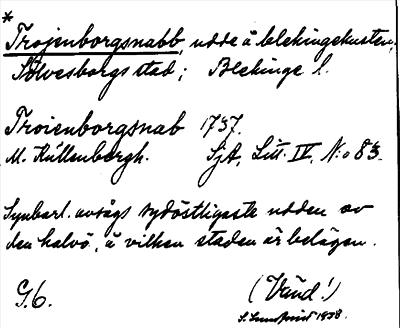 *
Trojenborgsnabb, udde å blekingekusten,
Sölvesborgs stad; Blekinge l.
Troienborgsnab 1737.
M. Küllenbergh. SjA, Litt. IV, N:o 83.
Synbarl. avsågs sydöstligaste udden av
den halvö, å vilken staden är belägen.
G. 6. (Vänd!)
1938.